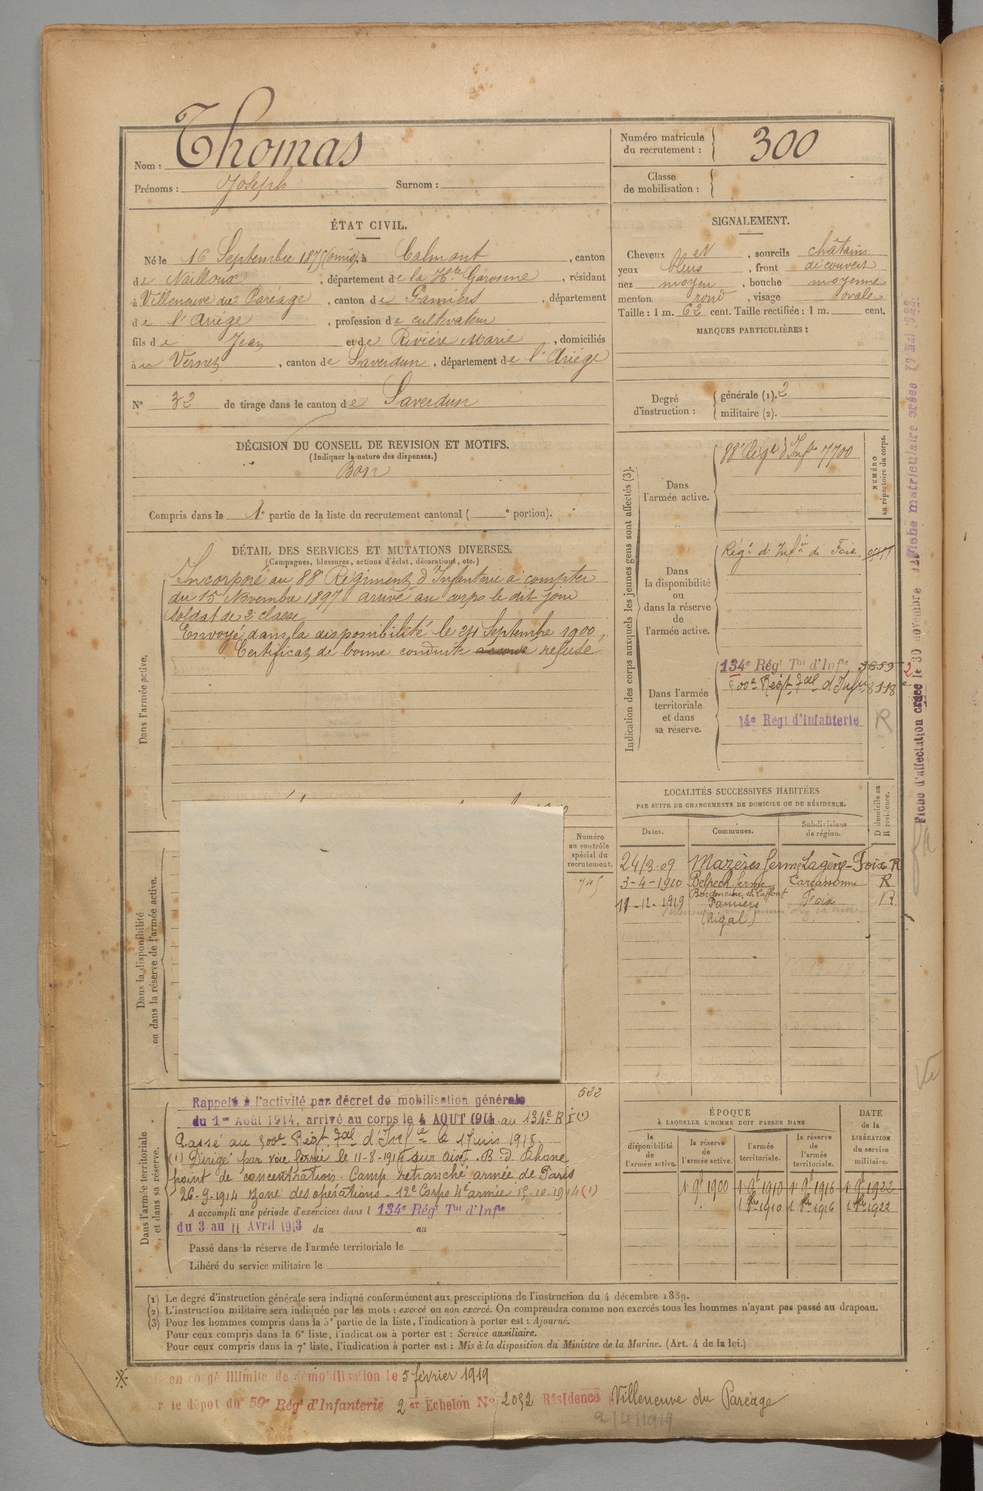 Nom : Thomas
Prénoms : Joseph Surnom :
Numéro matricule du recrutement : 300
Classe de mobilisation :
ÉTAT CIVIL.
Né le 16 Septembre 187 à Calmont, canton
de Nailloux, département de la Hte Garonne, résidant
à Villeneuve du Paréage, canton de Pamiers, département
de l'Ariège, profession de cultivateur
fils de Jean et de Rivière Marie, domiciliés
à Vernet, canton de Saverdun, département de l'Ariège
N° 32 de tirage dans le canton de Saverdun
DÉCISION DU CONSEIL DE REVISION ET MOTIFS.
(Indiquer la nature des dispenses.)
Bon
Compris dans la 1e partie de la liste du recrutement cantonal ( e portion).
SIGNALEMENT.
Cheveux , sourcils châtains
yeux bleus, front découvert
nez moyen, bouche moyenne
menton rond, visage ovale
Taille : 1 m. 62 cent. Taille rectifiée : 1 m. cent.
MARQUES PARTICULIÈRES :
Degré d'instruction : générale (1). 2
militaire (2).
DÉTAIL DES SERVICES ET MUTATIONS DIVERSES.
(Campagnes, blessures, actions d'éclat, décorations, etc.)
Dans l'armée active.
Incorporé au 88e Régiment d'Infanterie à compter
du 15 Novembre 1897 arrivé au corps le dit jour
soldat de 2e classe
Envoyé dans la disponibilité le 24 Septembre 1900,
Certificat de bonne conduite refusé
Indication des corps auxquels les jeunes gens sont affectés (3).
NUMÉRO au répertoire du corps.
Dans l'armée active.
88e Régt d'Infie 7700
Dans la disponibilité ou dans la réserve de l'armée active.
Régt d'Infie de Foix
Dans l'armée territoriale et dans sa réserve.
134e Régt Tal d'Infie
Régt Tal d'Infie
14e Régt d'Infanterie R
LOCALITÉS SUCCESSIVES HABITÉES
PAR SUITE DE CHANGEMENTS DE DOMICILE OU DE RÉSIDENCE.
Dates. Communes. Subdivisions de région. D domicile ou R résidence.
24/3.09 Mazères ferme Lagène - Foix R
3-4-1910 Carcassonne R
11-12-1919 Pamiers Foix R
(Rigal)
Dans la disponibilité ou dans la réserve de l'armée active.
Numéro au contrôle spécial du recrutement.
745
522
Dans l'armée territoriale et dans sa réserve.
Rappelé à l'activité par décret de mobilisation générale
du 1er Août 1914, arrivé au corps le 4 AOUT 1914 au 134e R I (1)
Passé au 300e Régt Tal d'Infie le 1 Juin 1915.
(1) Dirigé par voie ferrée le 11-8-1914 sur
point de concentration. Camp retranché armée de Paris
26-9-1914 zone des opérations. 12e Corps 4e armée 15-10-1914 (1)
A accompli une période d'exercices dans l 134e Régt Tal d'Infie
du 3 au 11 Avril 1913 du au
Passé dans la réserve de l'armée territoriale le
Libéré du service militaire le
ÉPOQUE
À LAQUELLE L'HOMME DOIT PASSER DANS
la disponibilité de l'armée active. la réserve de l'armée active. l'armée territoriale. la réserve de l'armée territoriale.
DATE de la LIBÉRATION du service militaire.
1 9e 1900 1 9e 1910 1 9e 1916 1 9e 1922
1910 1916 1922
(1) Le degré d'instruction générale sera indiqué conformément aux prescriptions de l'instruction du 4 décembre 1889.
(2) L'instruction militaire sera indiquée par les mots : exercé ou non exercé. On comprendra comme non exercés tous les hommes n'ayant pas passé au drapeau.
(3) Pour les hommes compris dans la 5e partie de la liste, l'indication à porter est : Ajourné.
Pour ceux compris dans la 6e liste, l'indication à porter est : Service auxiliaire.
Pour ceux compris dans la 7e liste, l'indication à porter est : Mis à la disposition du Ministre de la Marine. (Art. 4 de la loi.)
en congé illimité de démobilisation le 5 février 1919
le dépôt du 59e Régt d'Infanterie 2e Echelon N° 2092 Résidence Villeneuve du Paréage
2/4/1919
Fiche d'affectation créée le 30 novembre
Fiche matriculaire créée